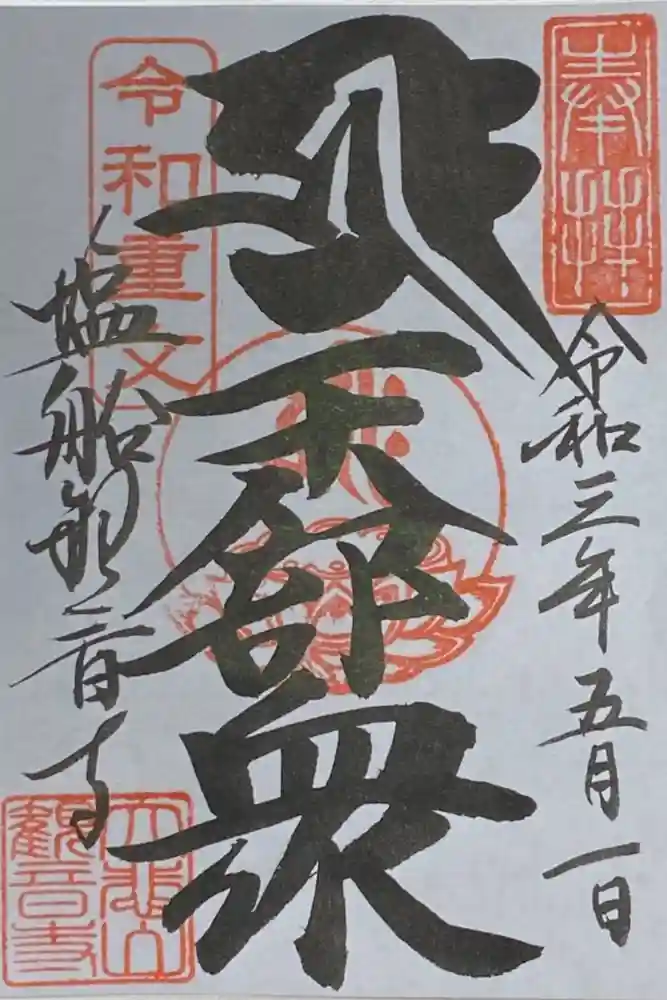 奉拝
令和三年五月一日
天部衆
令和重文
塩船観音寺
大悲山
觀音寺